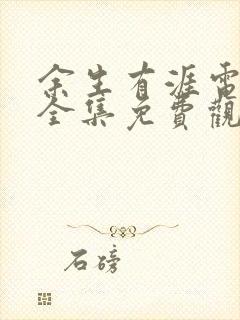 余生有涯電
全集免費觀
石磅